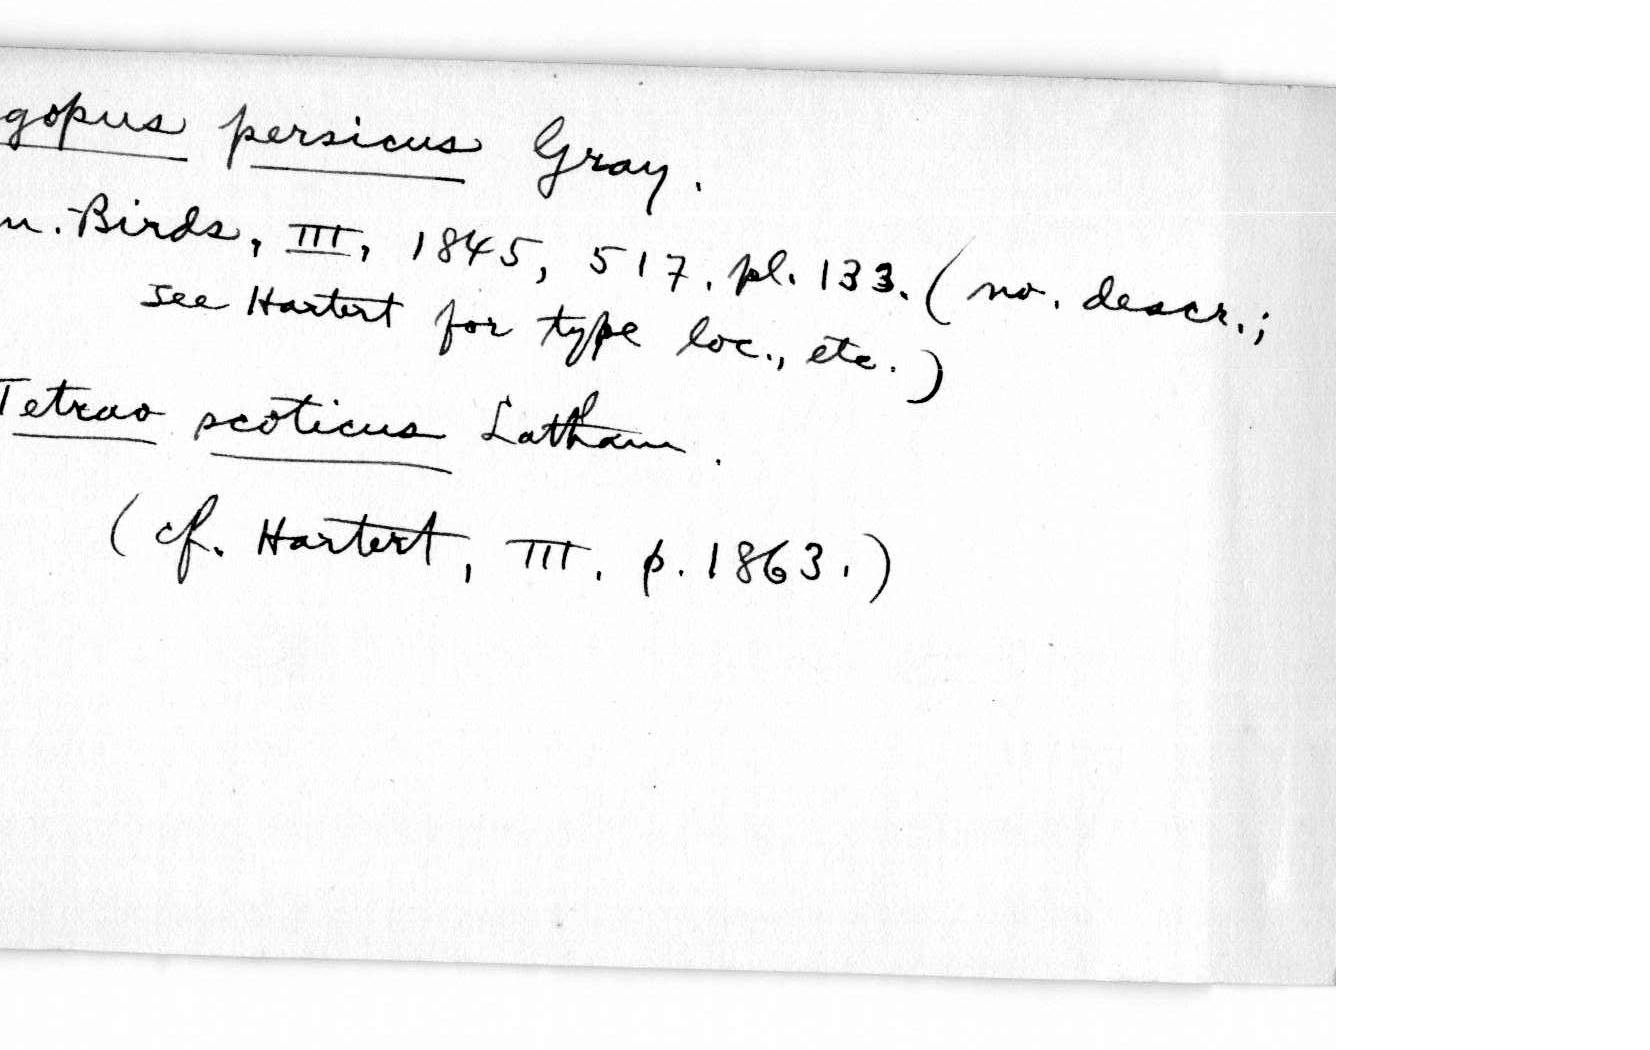 gopus persicus Gray.
n. Birds, III, 1845, 517, pl. 133. (no. descr.;
see Hartert for type loc., etc.)
Tetrao scoticus Latham.
(cf. Hartert, III. p. 1863.)